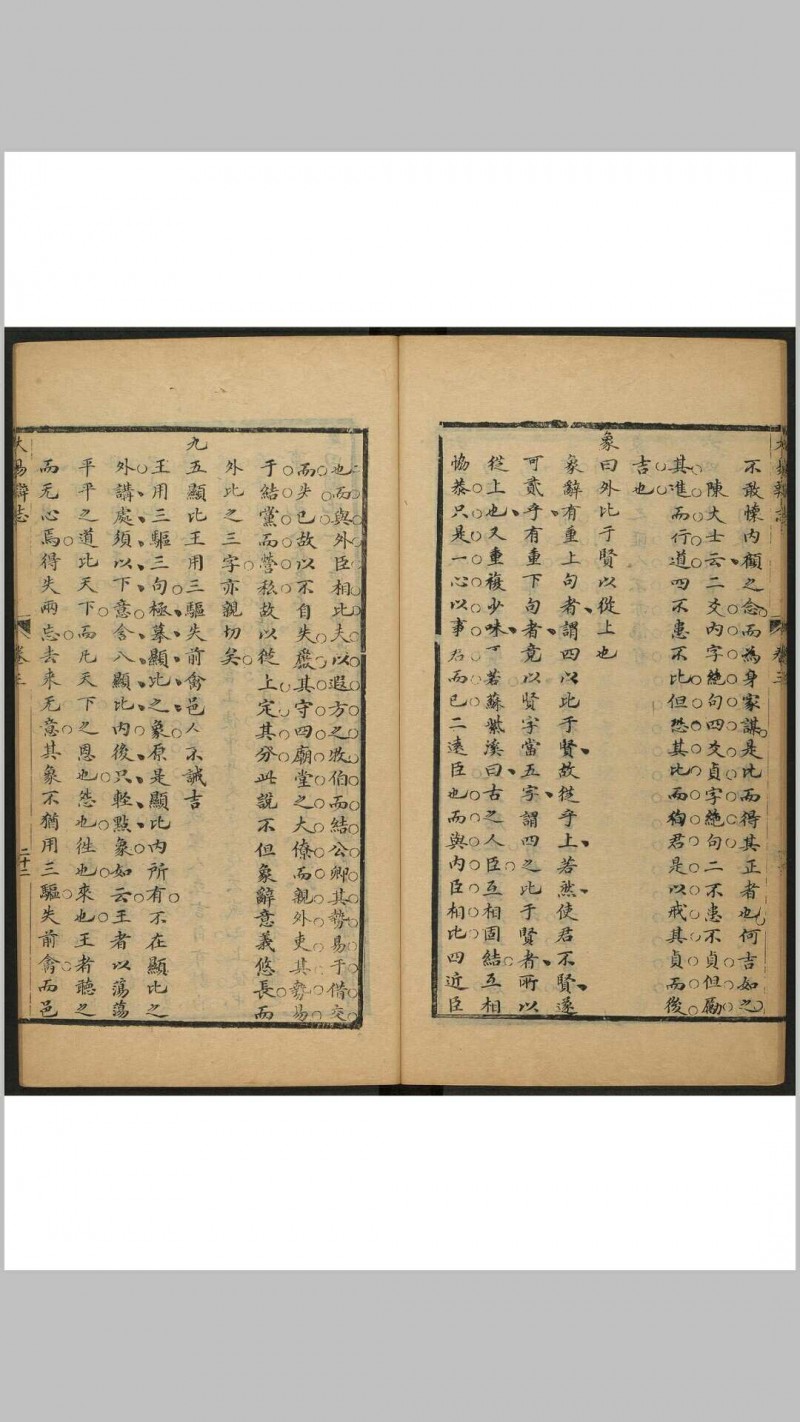 不敢悚內顧之念而為身家謀是比而得其正者也何吉如之
陳大士云二爻內字絕句四爻貞字絕句二不患不貞但勵
其進而行道四不患不比但恐其比而徇君是以戒其貞而後
吉也
象曰外比于賢以從上也
象辭有重上句者謂四以比于賢故從乎上若然使君不賢遂
可貳乎有重下句者竟以賢字當五字謂四之比于賢者所以
從上也又重複少味不若蘇紫溪曰古之人臣互相固結互相
恊恭只是一心以事君而已二遠臣也而與內臣相比四近臣
也而與外臣相比夫以遐方之牧伯而結公卿其勢易于借交
而失已故以不自失嚴其守四廟堂之大僚而親外吏其勢易
于結黨而營私故以從上定其分此說不但象辭意義悠長而
外比之三字亦親切矣
九五顯比王用三驅失前禽邑人不誡吉
王用三驅三句極摹顯比之象原是顯比內所有不在顯比之
外講處須以下意含入顯比內後只輕點象如云王者以蕩蕩
平平之道比天下而凡天下之恩也怨也徃也來也王者聽之
而无心焉得失兩忘去來无意其象不猶用三驅失前禽而邑
大易辯志
卷三
二十二